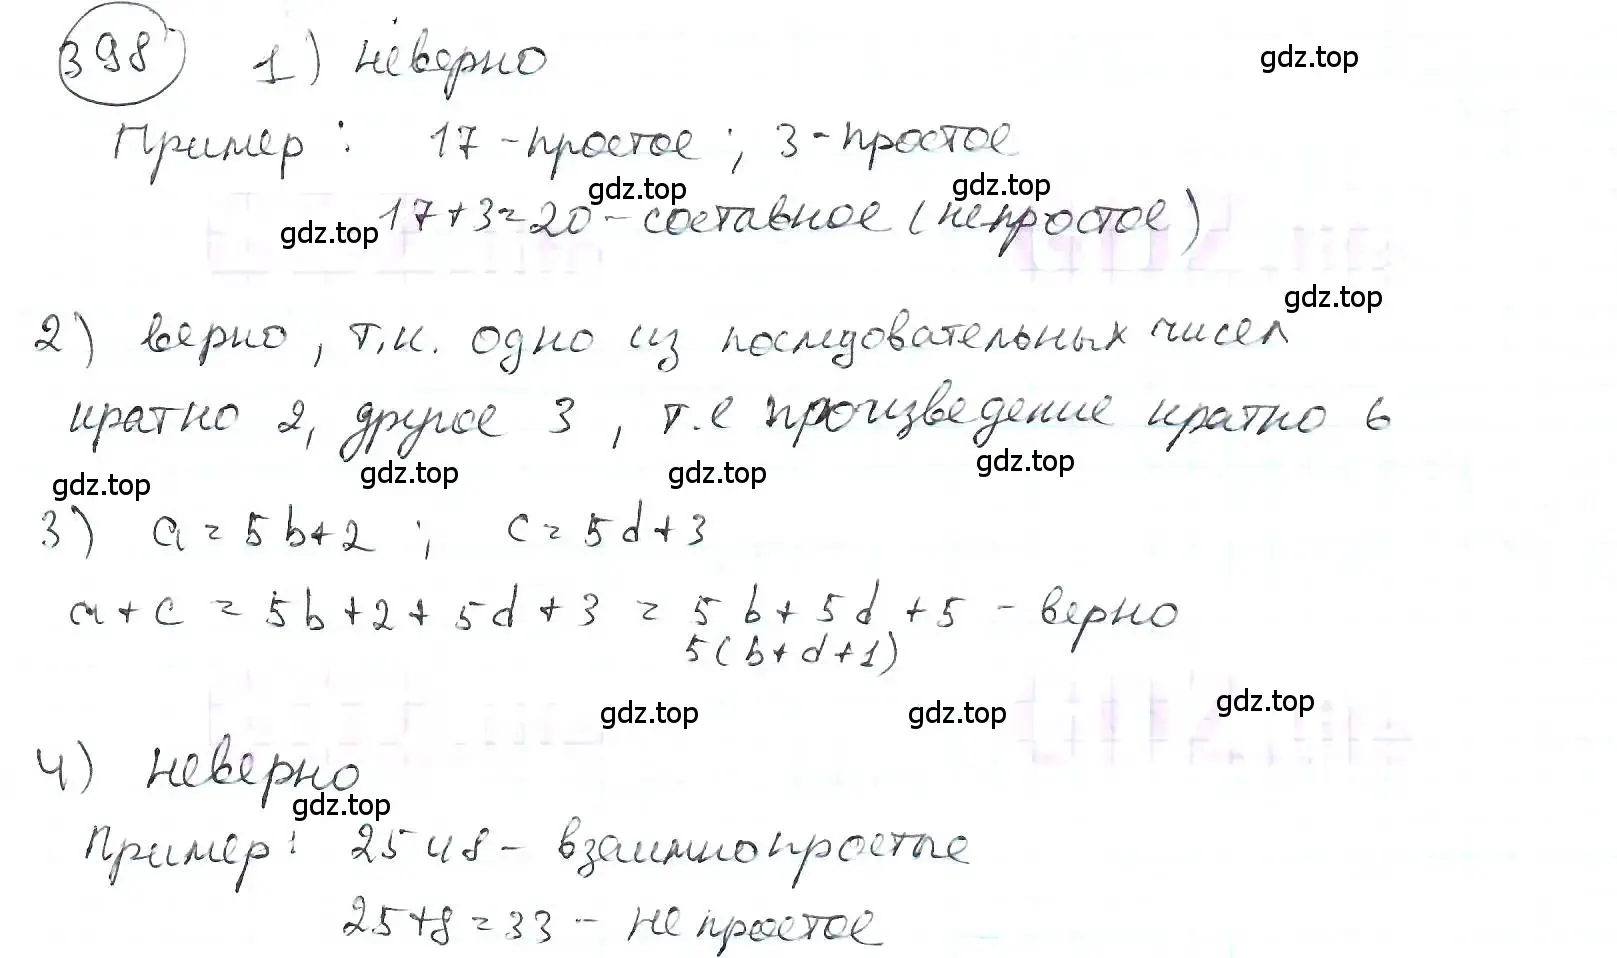 398 1) неверно
gdz.top
Пример: 17 - простое; 3 - простое
gdz.top gdz.top
17+3=20 - составное (непростое)
gdz.top
gdz.top
2) верно, т.к. одно из последовательных чисел
кратно 2, другое 3, т.е произведение кратно 6
gdz.top gdz.top gdz.top gdz.top
3) a = 5b+2; c = 5d+3
a+c = 5b+2+5d+3 = 5b+5d+5 - верно
5(b+d+1)
gdz.top gdz.top gdz.top
4) неверно
gdz.top
Пример: 25 и 8 - взаимно простые
25+8=33 - не простое